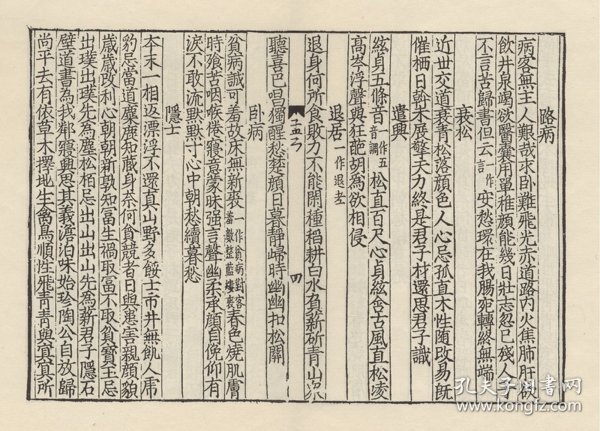 路病
病客無主人艱哉求卧難飛光赤道路內火焦肺肝欲
飲井泉竭欲醫囊用單稚顏能幾日壯志忽已殘人子
不言苦歸書但云一作言安愁環在我腸宛轉終無端
衰松
近世交道衰青松落顏色人心忌孤直木性隨改易既
摧棲日幹未展擎天力終是君子材還思君子識
遣興
絃貞五條音一作五音調松直百尺心貞絃含古風直松凌
高岑浮聲與狂葩胡為欲相侵
退居一作退老
退身何所食敗力不能閑種稻耕白水負薪斫青山
四
聽喜巴唱獨醒愁楚顏日暮靜歸時幽幽扣松關
卧病
貧病誠可羞故床無新裘一作貧病對客羞春色燒肌膚
時飧苦咽喉倦寢意蒙昧强言聲幽柔承顏自俛仰有
淚不敢流默默寸心中朝愁續暮愁
隱士
本末一相返漂浮不還真山野多餒士市井無飢人虎
豹忌當道麋鹿知藏身奈何貪競者日與患害親顏貌
歲歲改利心朝朝新孰知富生禍取富不取貧寶玉忌
出璞出璞先為塵松柏忌出山出山先為薪君子隱石
壁道書為我鄰寢興思其義澹泊味始珍陶公自放歸
尚平去有依草木擇地生禽鳥順性飛青青與冥冥所
孔夫子旧书网
www.kongfz.com